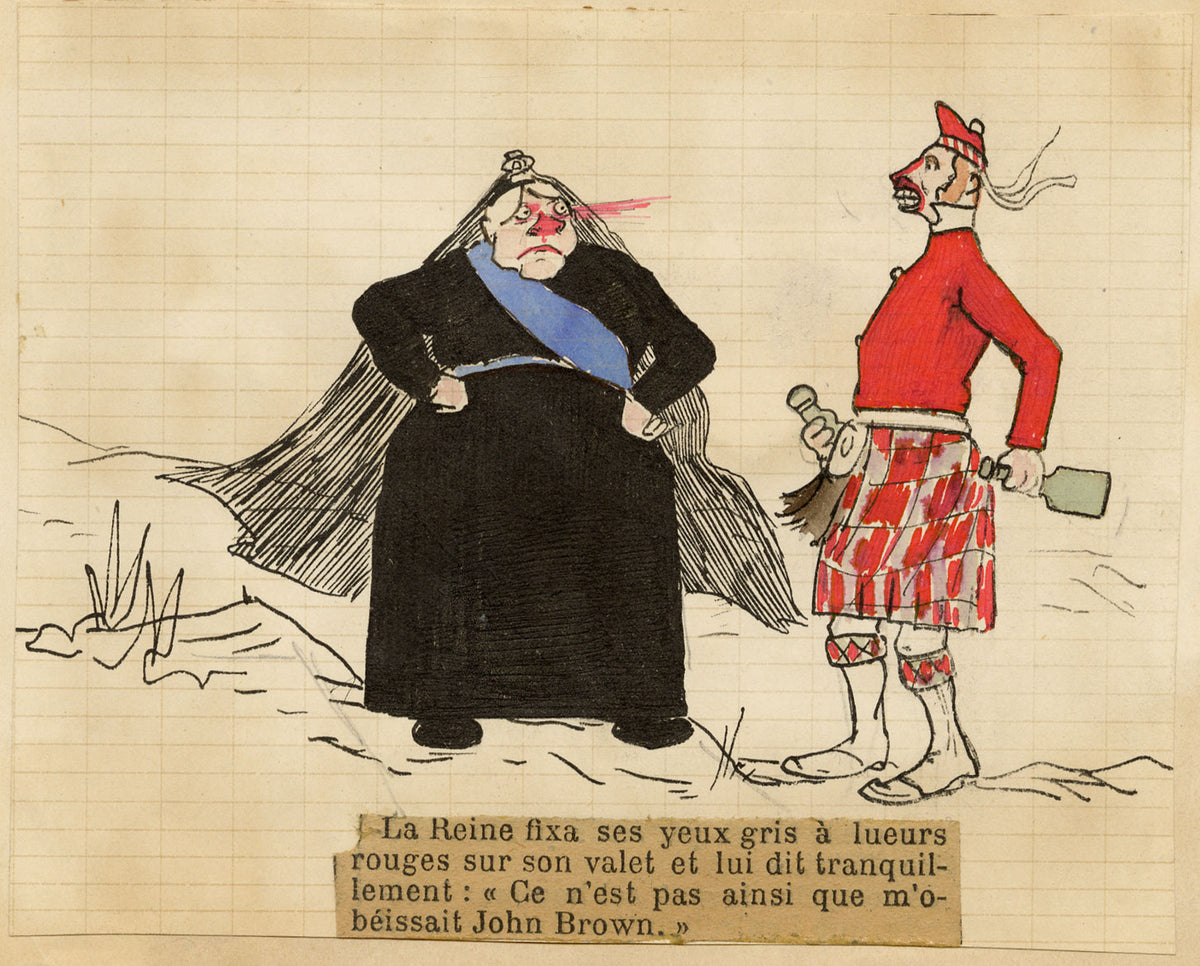 La Reine fixa ses yeux gris à lueurs
rouges sur son valet et lui dit tranquil-
lement : « Ce n'est pas ainsi que m'o-
béissait John Brown. »